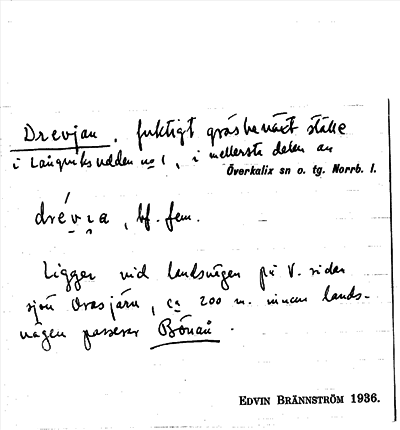 Drevjan, fuktigt gräsbeväxt ställe
i Långviksudden no 1, i mellersta delen av
Överkalix sn o. tg. Norrb. l.
drévıa, bf. fem.
Ligger vid landsvägen på V. sidan
sjön Orasjärv, ca 200 m. innan lands-
vägen passerar Bönån.
EDVIN BRÄNNSTRÖM 1936.